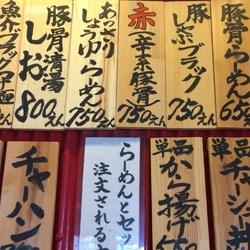 豚骨らーめん
650えん
豚しゃぶブラック
750えん
赤辛系豚骨
750えん
あっさりしょうゆらーめん
750えん
豚骨清湯しお
800えん
魚介ブラック
単品チャーシュー
単品から揚げ
らーめんとセッ
注文される
チャーハン